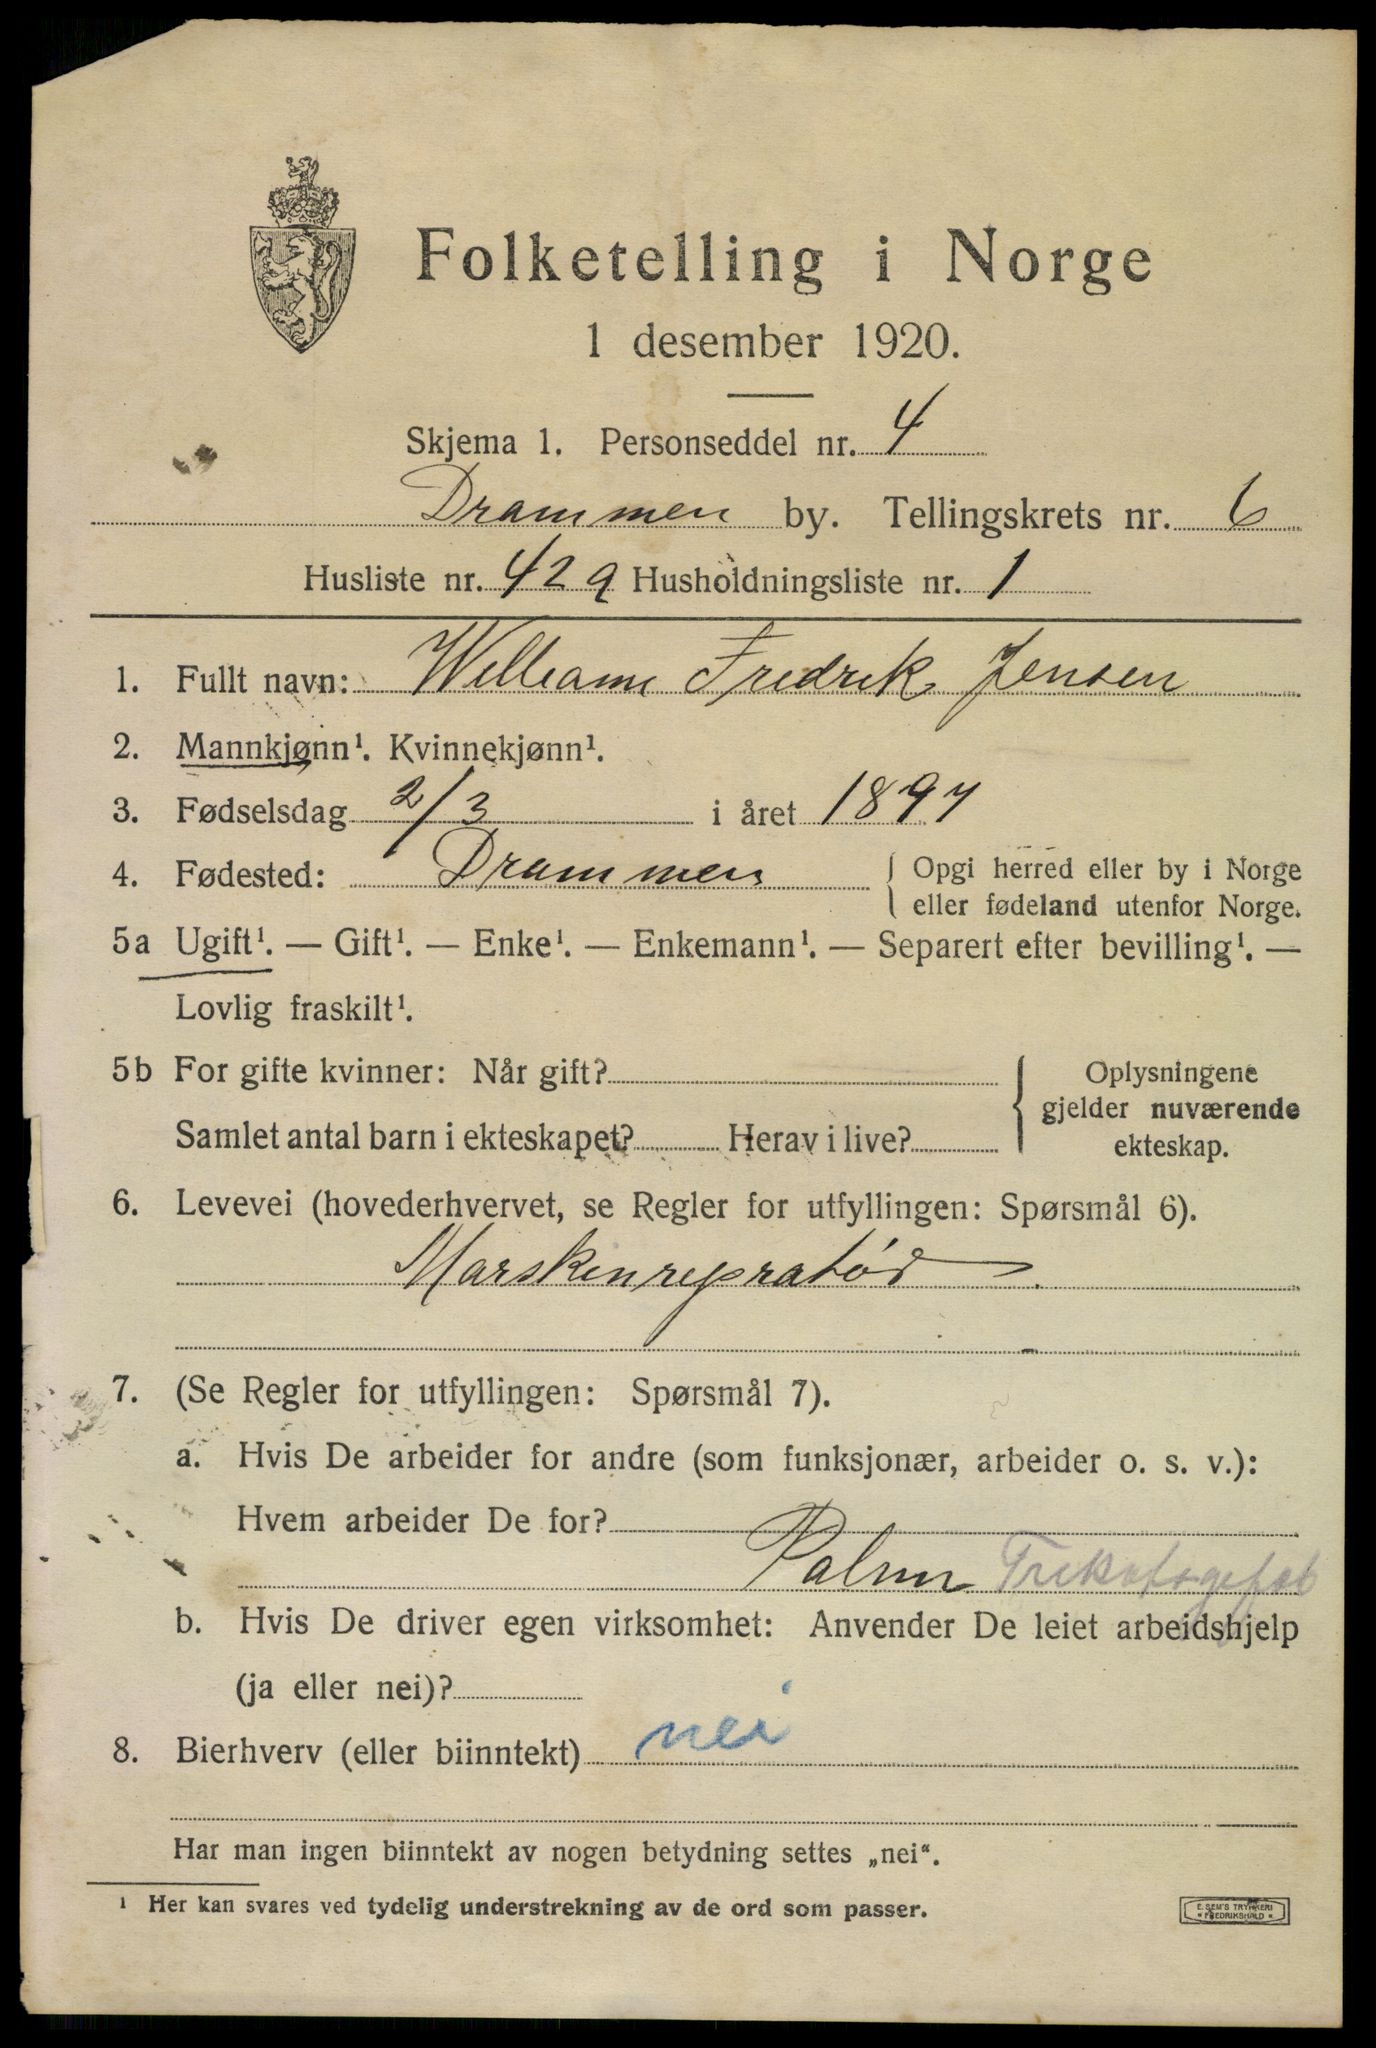 Folketelling i Norge
1 desember 1920.
Skjema 1. Personseddel nr. 4
Drammen by. Tellingskrets nr. 6
Husliste nr. 429 Husholdningsliste nr. 1
1. Fullt navn: William Fredrik Jensen
2. Mannkjønn¹. Kvinnekjønn¹.
3. Fødselsdag 2/3 i året 1897
4. Fødested: Drammen { Opgi herred eller by i Norge
eller fødeland utenfor Norge.
5a Ugift¹. — Gift¹. — Enke¹. — Enkemann¹. — Separert efter bevilling¹. —
Lovlig fraskilt¹.
5b For gifte kvinner: Når gift? { Oplysningene
gjelder nuværende
Samlet antal barn i ekteskapet? Herav i live?
ekteskap.
6. Levevei (hovederhvervet, se Regler for utfyllingen: Spørsmål 6).
Marskinrepratør
7. (Se Regler for utfyllingen: Spørsmål 7).
a. Hvis De arbeider for andre (som funksjonær, arbeider o. s. v.):
Hvem arbeider De for?
Palm Trikotagefab
b. Hvis De driver egen virksomhet: Anvender De leiet arbeidshjelp
(ja eller nei)?
8. Bierhverv (eller biinntekt) nei
Har man ingen biinntekt av nogen betydning settes „nei“.
¹ Her kan svares ved tydelig understrekning av de ord som passer.
E. SEM'S TRYKKERI
FREDRIKSHALD